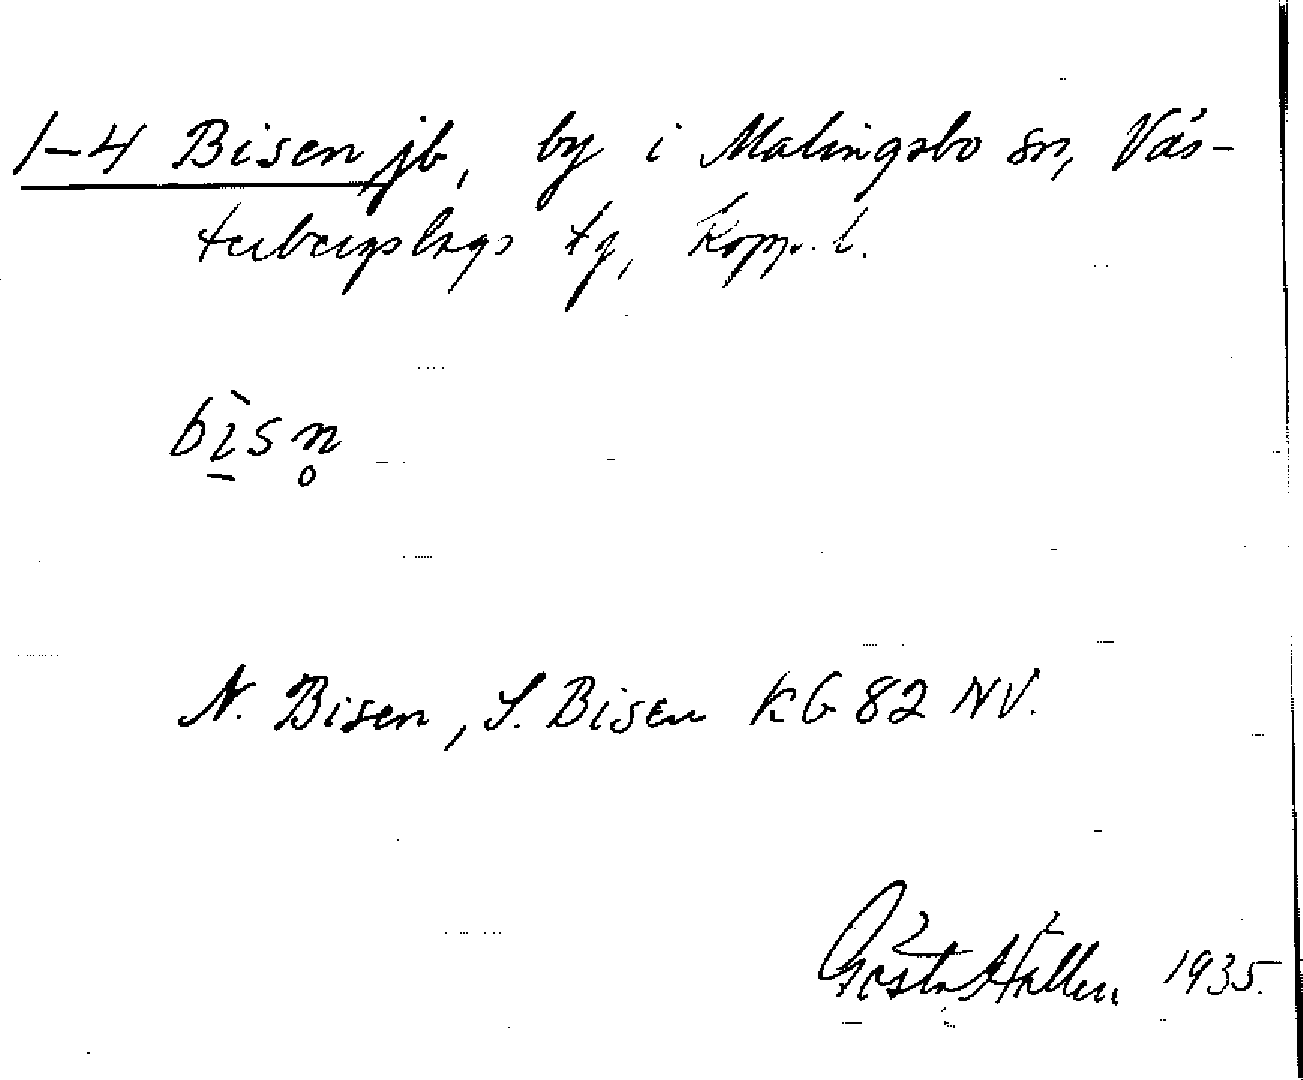 1-4 Bisen jb, by i Malingsbo sn, Väs-
terbergslags tg, Kopp. l.
bìsn̥
N. Bisen, S. Bisen KG 82 NV.
Gösta Hallen 1935.